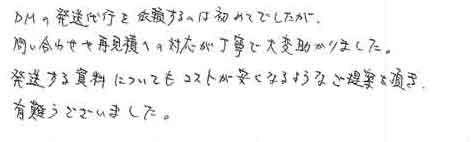 DMの発送代行を依頼するのは初めてでしたが、
問い合わせや再見積への対応が丁寧で大変助かりました。
発送する資料についてもコストが安くなるようなご提案を頂き、
有難うございました。